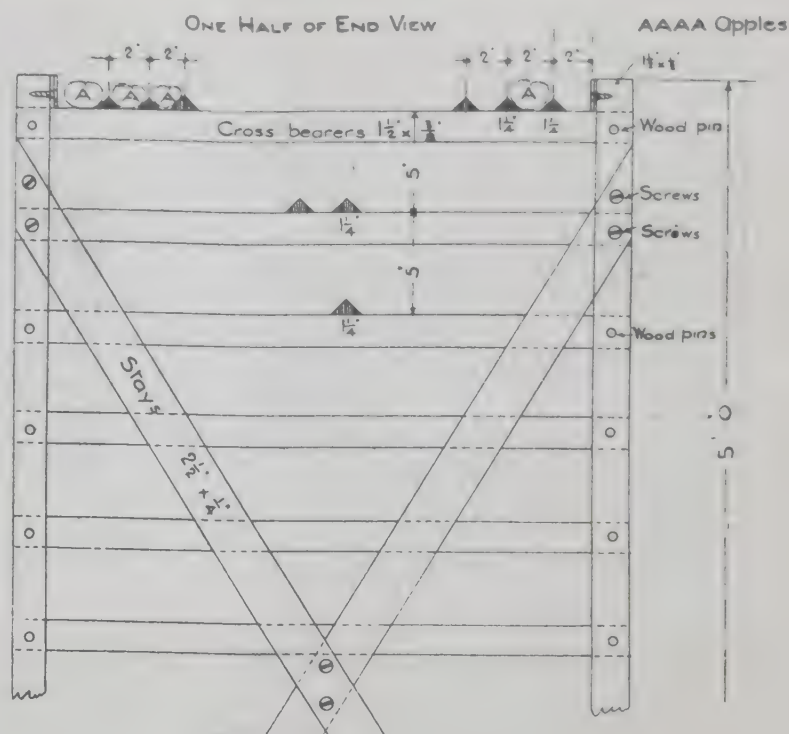 ONE HALF OF END VIEW
AAAA Apples
2" 2"
2" 2" 2"
A A A
A
Cross bearers 1½" ×
1¼" 1¼"
Wood pin
5"
Screws
1¼"
Screws
5"
1¼"
Wood pins
Stays 2½" × ¼"
5' 0"